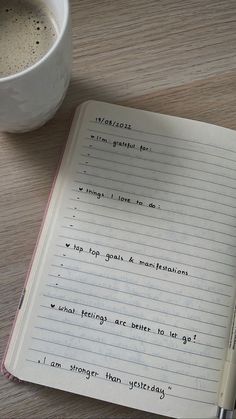 19/08/2022
♥ I'm grateful for:
-
-
-
♥ things I love to do:
-
-
-
♥ top top goals & manifestations
-
-
-
♥ what feelings are better to let go?
-
-
-
"I am stronger than yesterday"